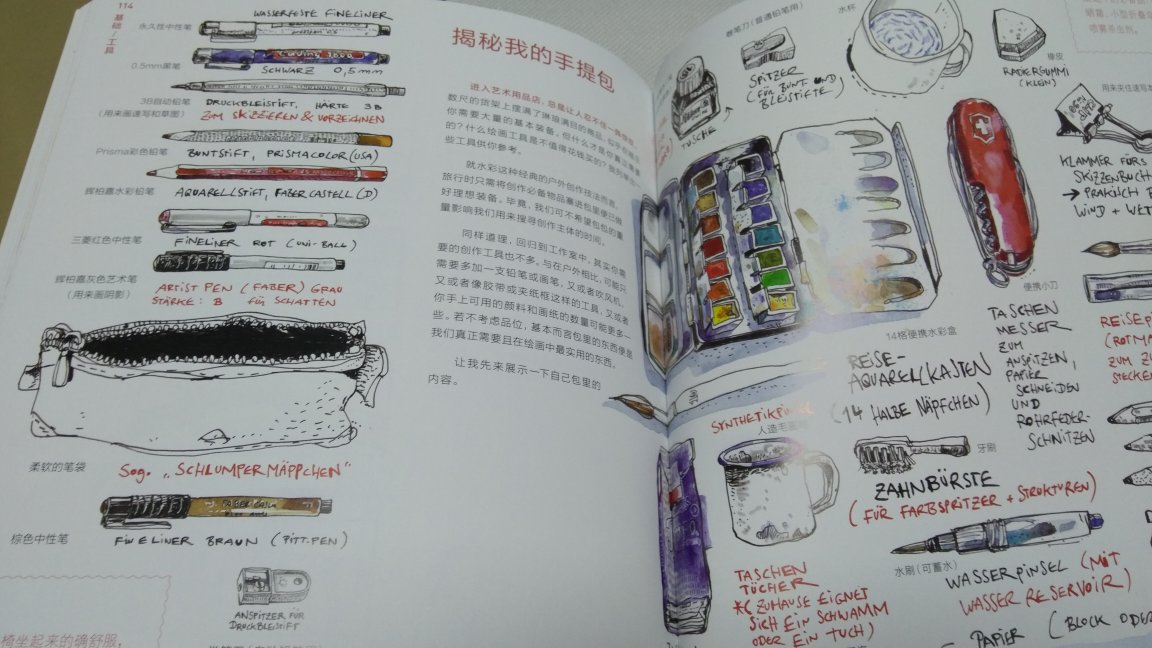 114
基础/工具
WASSERFESTE FINELINER
永久性中性笔
0.5mm黑笔
SCHWARZ 0,5mm
3B自动铅笔
(用来画速写和草图)
DRUCKBLEISTIFT, HÄRTE 3B
ZUM SKIZZIEREN & VORZEICHNEN
Prisma彩色铅笔
BUNTSTIFT, PRISMACOLOR (USA)
辉柏嘉水彩铅笔
AQUARELLSTIFT, FABER CASTELL (D)
三菱红色中性笔
FINELINER ROT (UNI-BALL)
辉柏嘉灰色艺术笔
(用来画阴影)
ARTIST PEN (FABER) GRAU
STÄRKE: B für SCHATTEN
柔软的笔袋
Sog. „SCHLUMPERMÄPPCHEN"
棕色中性笔
FINELINER BRAUN (PITT-PEN)
ANSPITZER FÜR
DRUCKBLEISTIFT
椅坐起来的确舒服，
揭秘我的手提包
进入艺术用品店，总是让人忍不住
数尺的货架上摆满了琳琅满目的商品，似乎在暗示
你需要大量的基本装备。但什么才是你真正需要
的？什么绘画工具是不值得花钱买的？我列举了一
些工具供你参考。
就水彩这种经典的户外创作技法而言，
旅行时只需将创作必备物品塞进包里便已做
好理想装备。毕竟，我们可不希望包包的重
量影响我们用来搜寻创作主体的时间。
同样道理，回归到工作室中，其实你需
要的创作工具也不多。与在户外相比，可能只
需要多加一支铅笔或画笔，又或者吹风机，
又或者像胶带或夹纸框这样的工具，又或者
你手上可用的颜料和画纸的数量可能更多一
些。若不考虑品位，基本而言包里的东西便是
我们真正需要且在绘画中最实用的东西。
让我先来展示一下自己包里的
内容。
卷笔刀(普通铅笔用)
SPITZER
(FÜR BUNT UND
BLEISTIFTE)
TUSCHE
水杯
橡皮
RADIERGUMMI
(KLEIN)
喷雾杀虫剂。
KLAMMER FÜRS
SKIZZENBUCH
→ PRAKTISCH
WIND +
便携小刀
TASCHEN
MESSER
ZUM
ANSPITZEN,
PAPIER
SCHNEIDEN
UND
ROHRFEDER-
SCHNITZEN
14格便携水彩盒
REISE-
AQUARELLKASTEN
(14 HALBE NÄPFCHEN)
人造毛
牙刷
ZAHNBÜRSTE
(FÜR FARBSPRITZER + STRUKTUREN)
TASCHEN
TÜCHER
*(ZUHAUSE EIGNET
SICH EIN SCHWAMM
ODER EIN TUCH)
水刷(可蓄水)
WASSERPINSEL (MIT
WASSER RESERVOIR)
PAPIER (BLOCK ODER